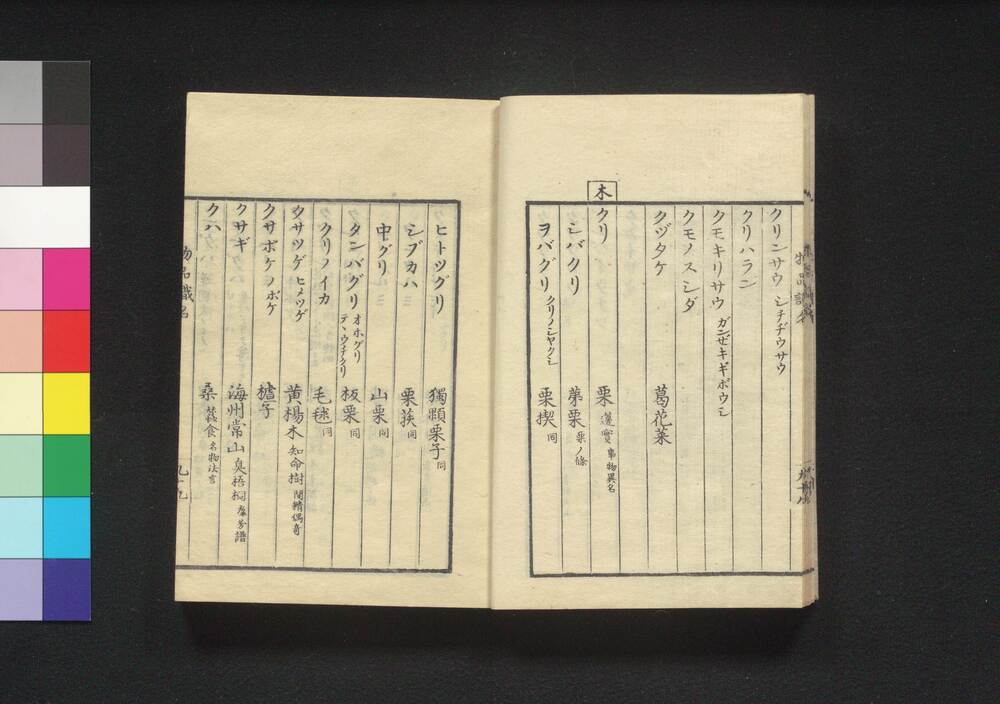 クリンサウ シチヂウサウ
クリハラン
クモキリサウ ガンゼキギボウシ
クモノスシダ
クヅタケ 葛花菜
木
クリ 栗 籩實 事物異名
シバクリ 茅栗 栗ノ條
ヲバグリ クリノシヤクシ 栗楔 同
ヒトツグリ 獨顆栗子 同
シブカハ 栗荴 同
中グリ 山栗 同
タンバグリ オホグリ テヽウチグリ 板栗 同
クリノイカ 毛毬 同
クサツゲ ヒメツゲ 黄楊木 知命樹 閩精偶奇
クサボケ ノボケ 樝子
クサギ 海州常山 臭梧桐 羣芳譜
クハ 桑 蠶食 名物法言
物品識名